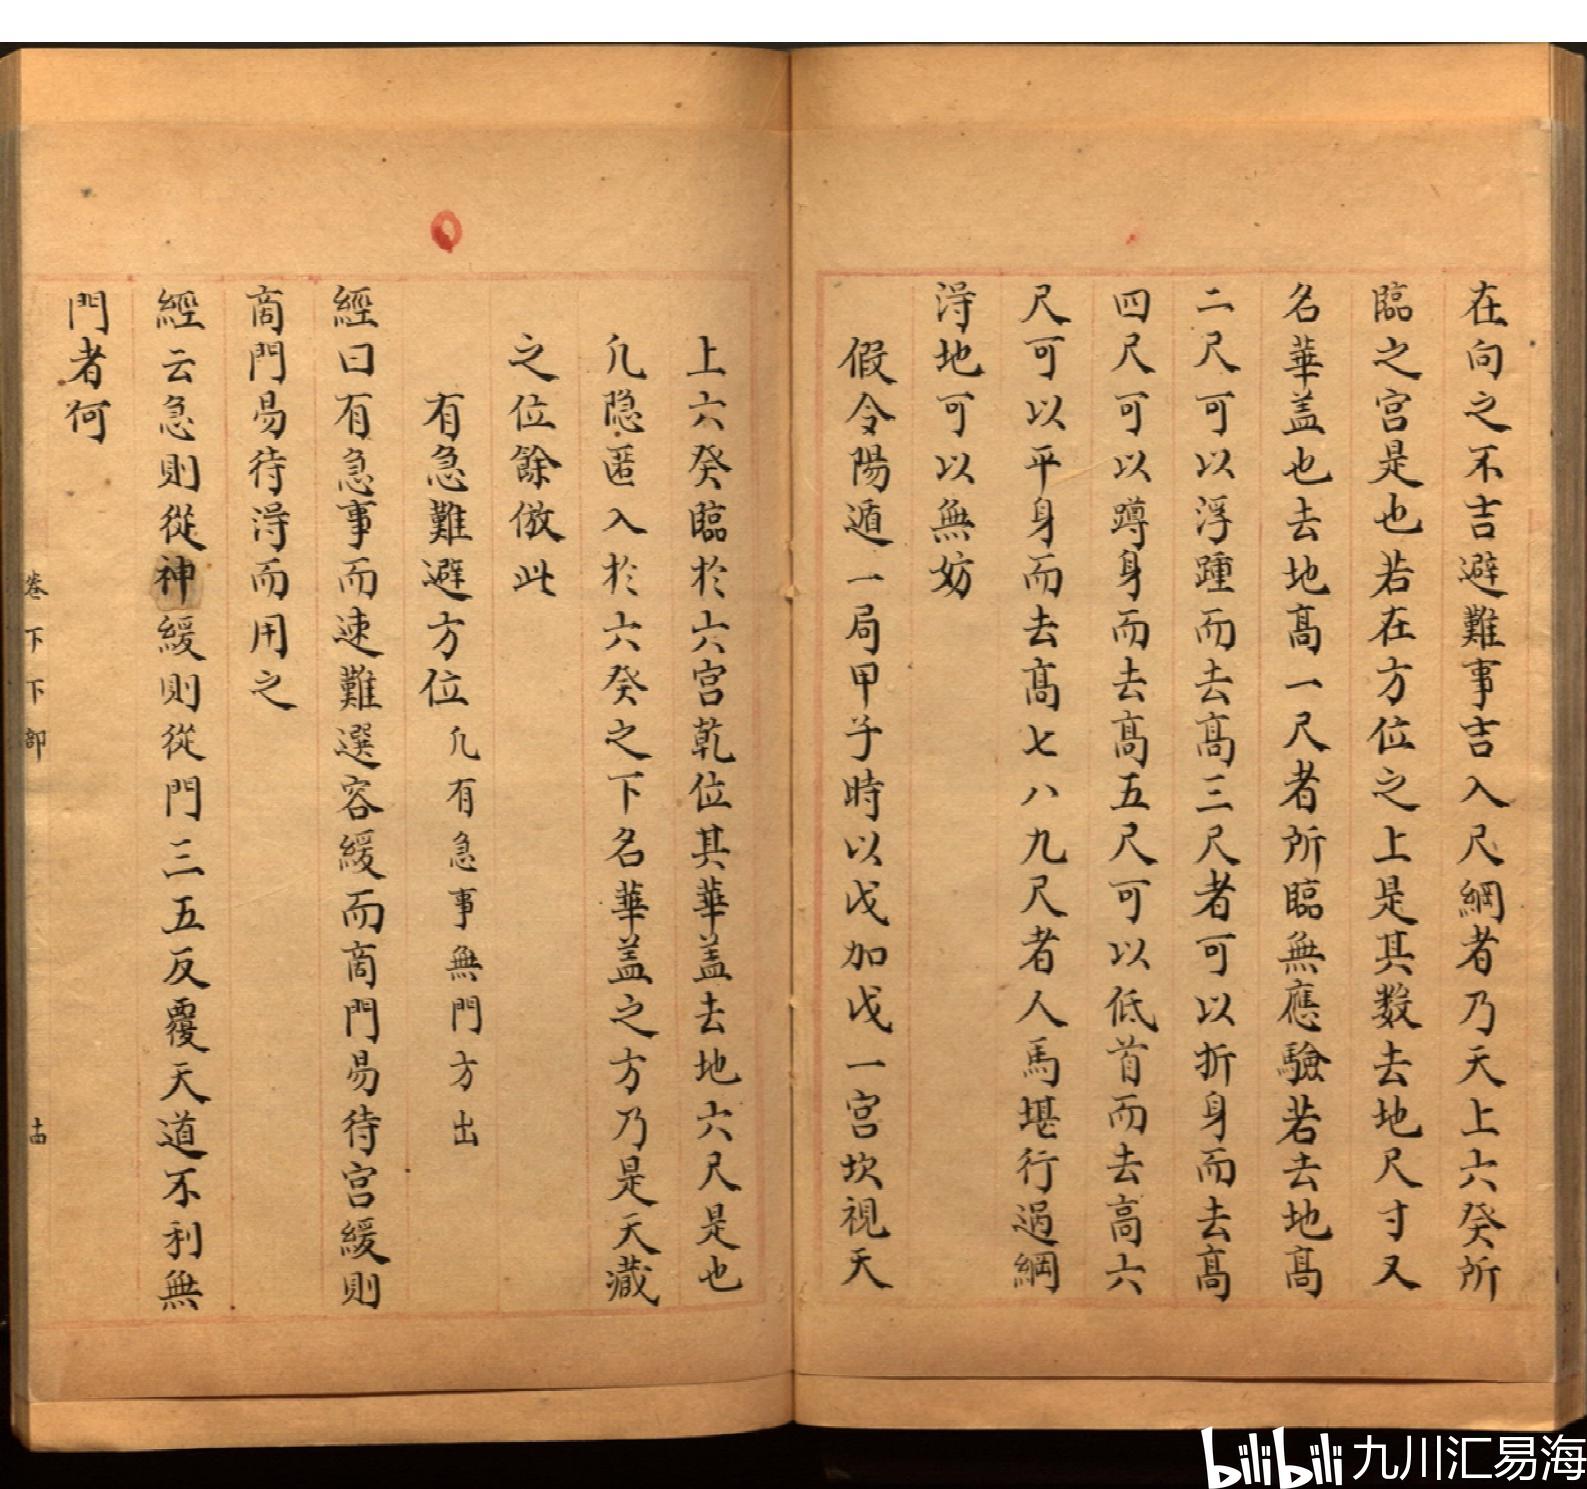 在向之不吉避難事吉入尺綱者乃天上六癸所
臨之宮是也若在方位之上是其数去地尺寸又
名華盖也去地髙一尺者所臨無應驗若去地髙
二尺可以浮踵而去髙三尺者可以折身而去髙
四尺可以蹲身而去髙五尺可以低首而去髙六
尺可以平身而去髙七八九尺者人馬堪行過綱
淂地可以無妨
假令陽遁一局甲子時以戊加戊一宮坎視天
上六癸臨於六宮乾位其華盖去地六尺是也
凢隐匿入於六癸之下名華盖之方乃是天藏
之位餘倣此
有急難避方位凢有急事無門方出
經曰有急事而速難選容緩而商門昜待宮緩則
商門昜待淂而用之
經云急則從神緩則從門三五反覆天道不利無
門者何
卷下下部
十四
bilibili 九川汇易海